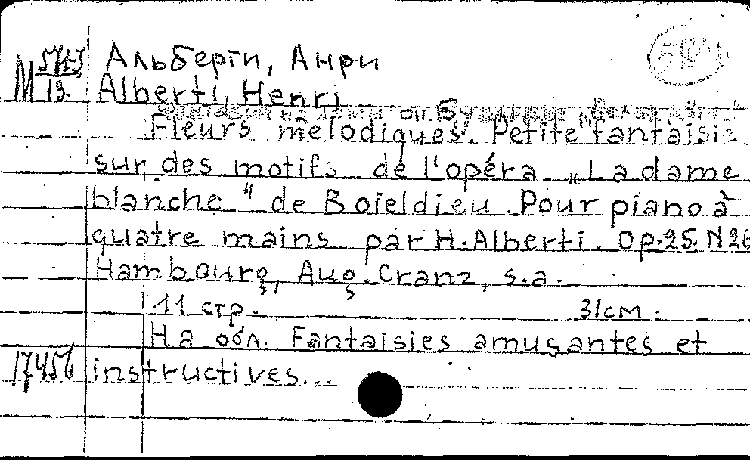 М 5763/13.
Альберти, Анри
Alberti, Henri
Fleurs mélodiques. Petite fantaisie
sur des motifs de l'opéra „La dame
blanche" de Boieldieu. Pour piano à
quatre mains par H. Alberti. Op. 25. N 26
Hambourg, Aug. Cranz, s.a.
11 стр. 31см.
На обл. Fantaisies amusantes et
17456 instructives...